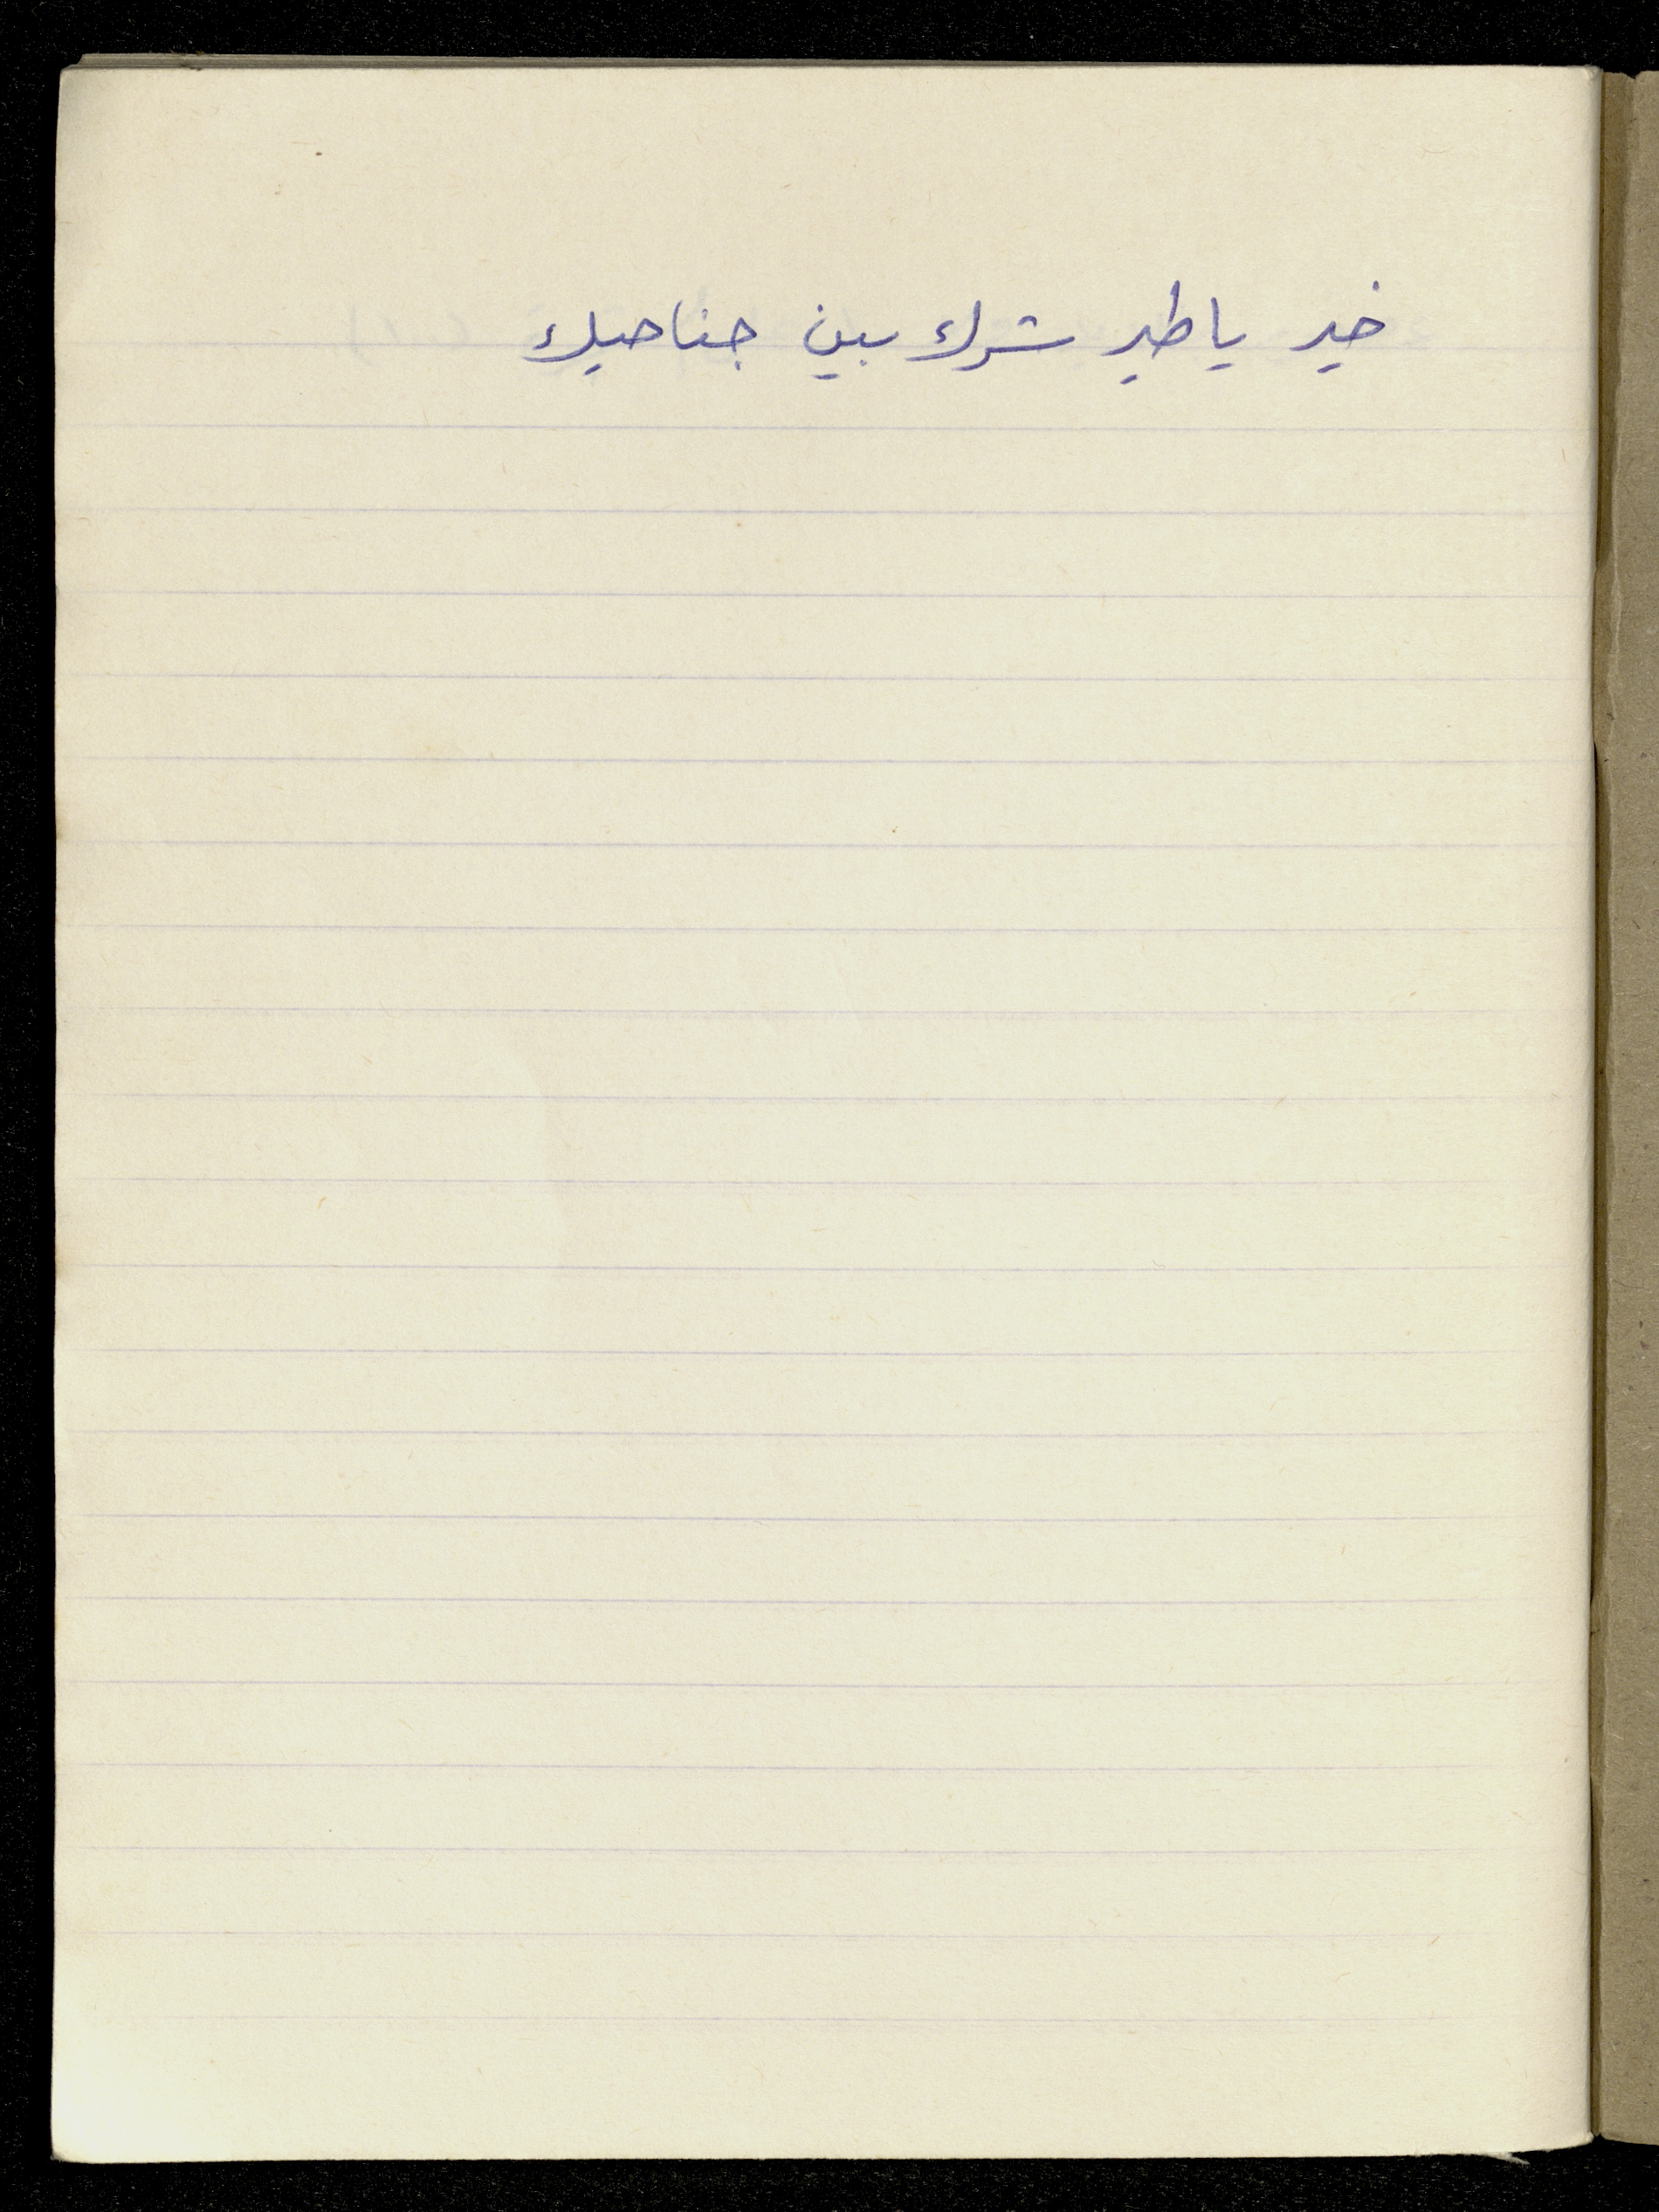 خير ياطير شرك بين جناحيك